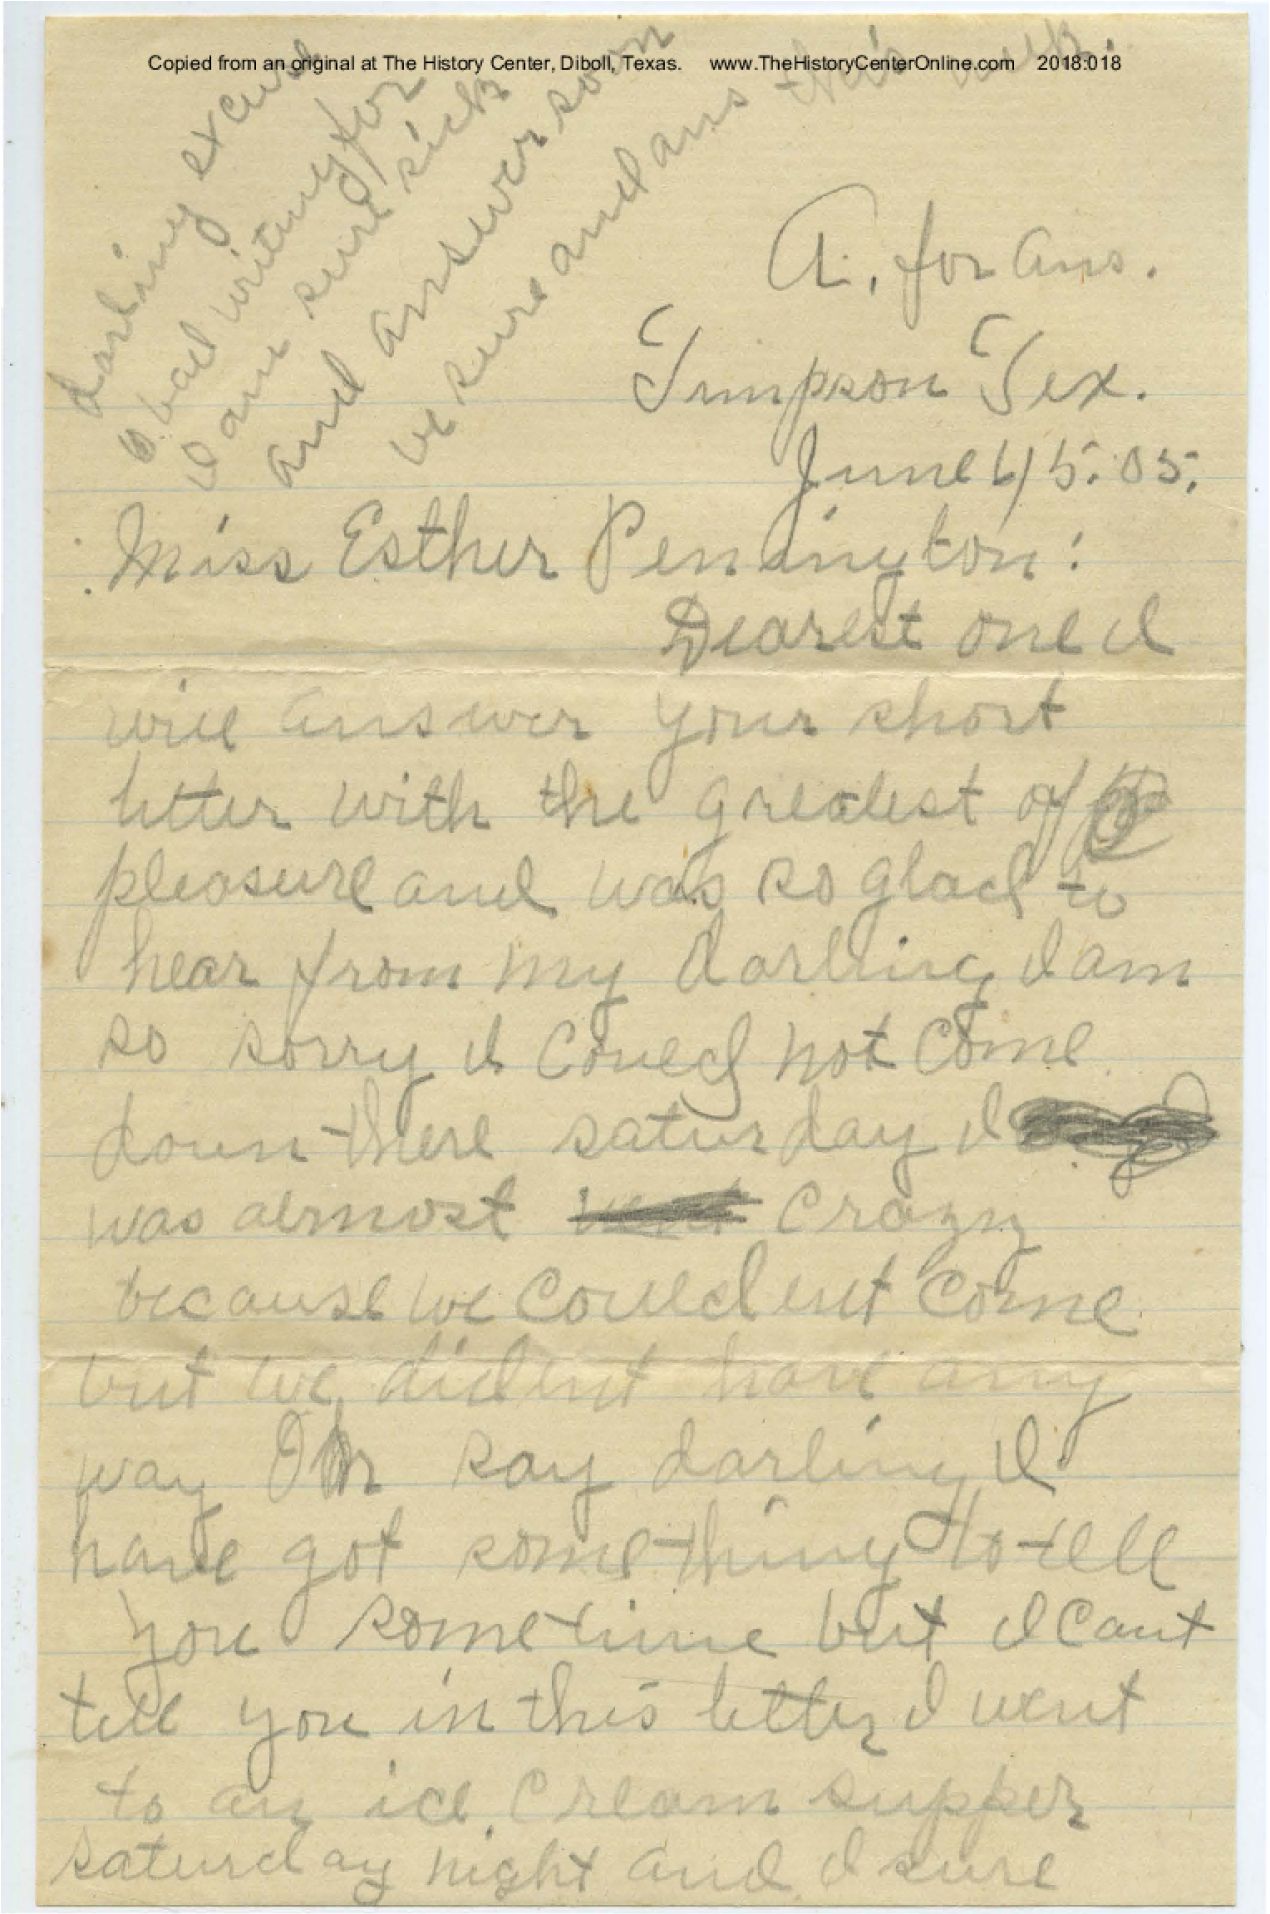 Copied from an original at The History Center, Diboll, Texas. www.TheHistoryCenterOnline.com 2018:018
darling excuse
bad writing for
I am sure sick
and answer soon
be sure and ans this week.
A. for Ans.
Timpson Tex.
June 15. 05.
Miss Esther Pennington:
Dearest one I
will answer your short
letter with the greatest of
pleasure and was so glad to
hear from my darling I am
so sorry I could not come
down there saturday I
was almost crazy
because we could ent come
but we did ent have any
way Oh say darling I
have got something to tell
you sometime but I cant
tell you in this letter I went
to an ice cream supper
saturday night and I sure